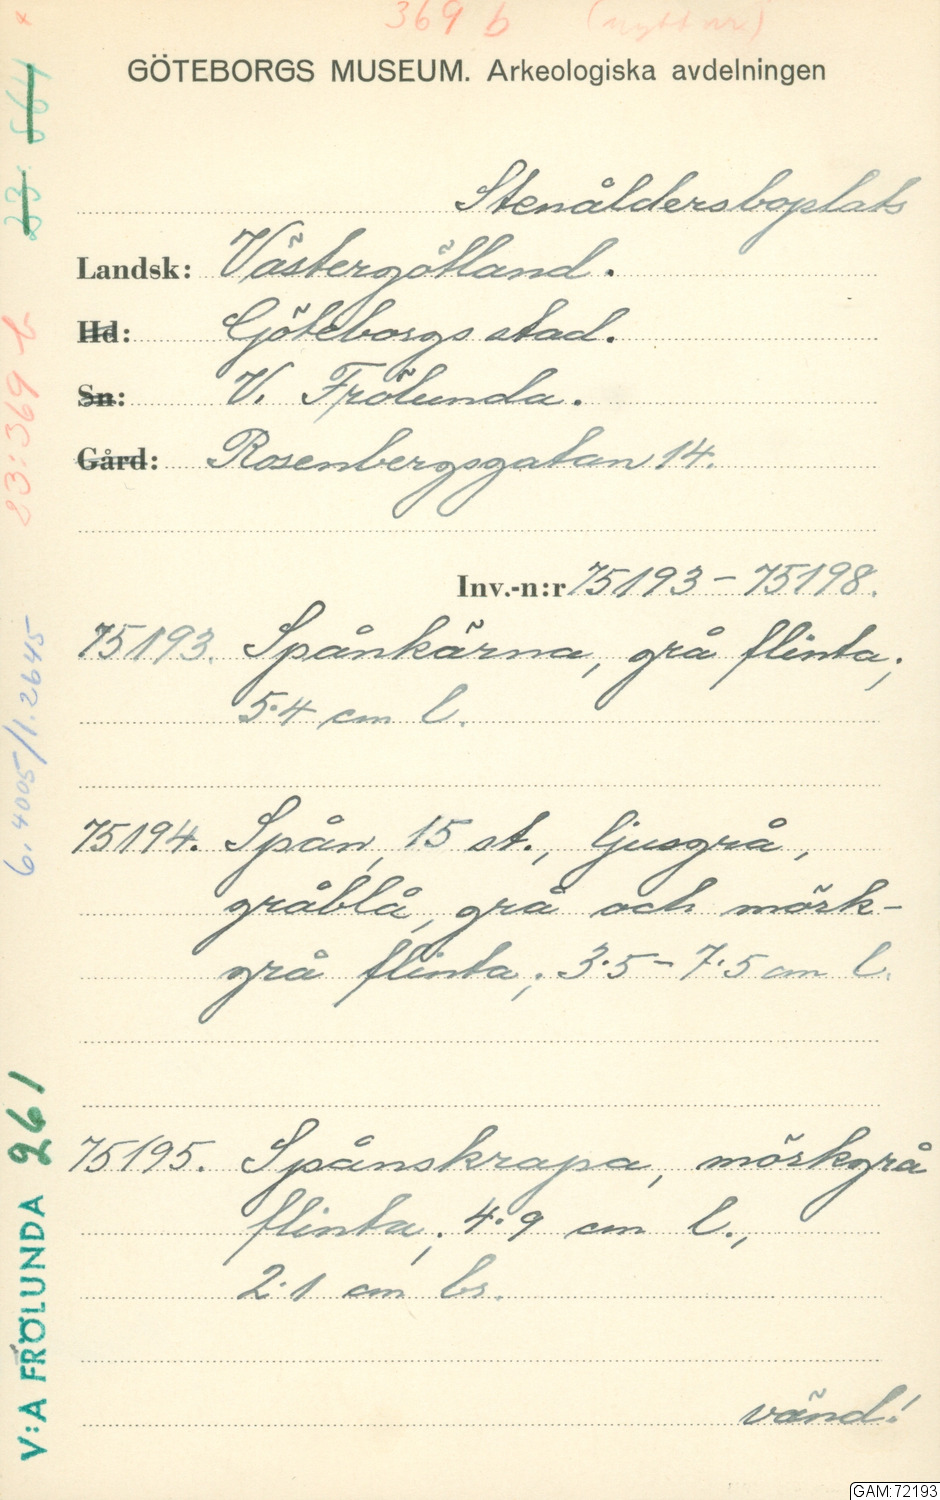 369 b (nytt nr)
GÖTEBORGS MUSEUM. Arkeologiska avdelningen
Stenåldersboplats
Landsk: Västergötland.
Hd: Göteborgs stad.
Sn: V. Frölunda.
Gård: Rosenbergsgatan 14.
Inv.-n:r 75193 – 75198.
75193. Spånkärna, grå flinta;
5.4 cm l.
75194. Spån, 15 st., ljusgrå,
gråblå, grå och mörk-
grå flinta; 3.5 – 7.5 cm l.
75195. Spånskrapa, mörkgrå
flinta; 4.9 cm l.,
2.1 cm br.
vänd!
x
23: 564
23:369 b
6.4005/1.2645
V:A FRÖLUNDA 261
GAM:72193